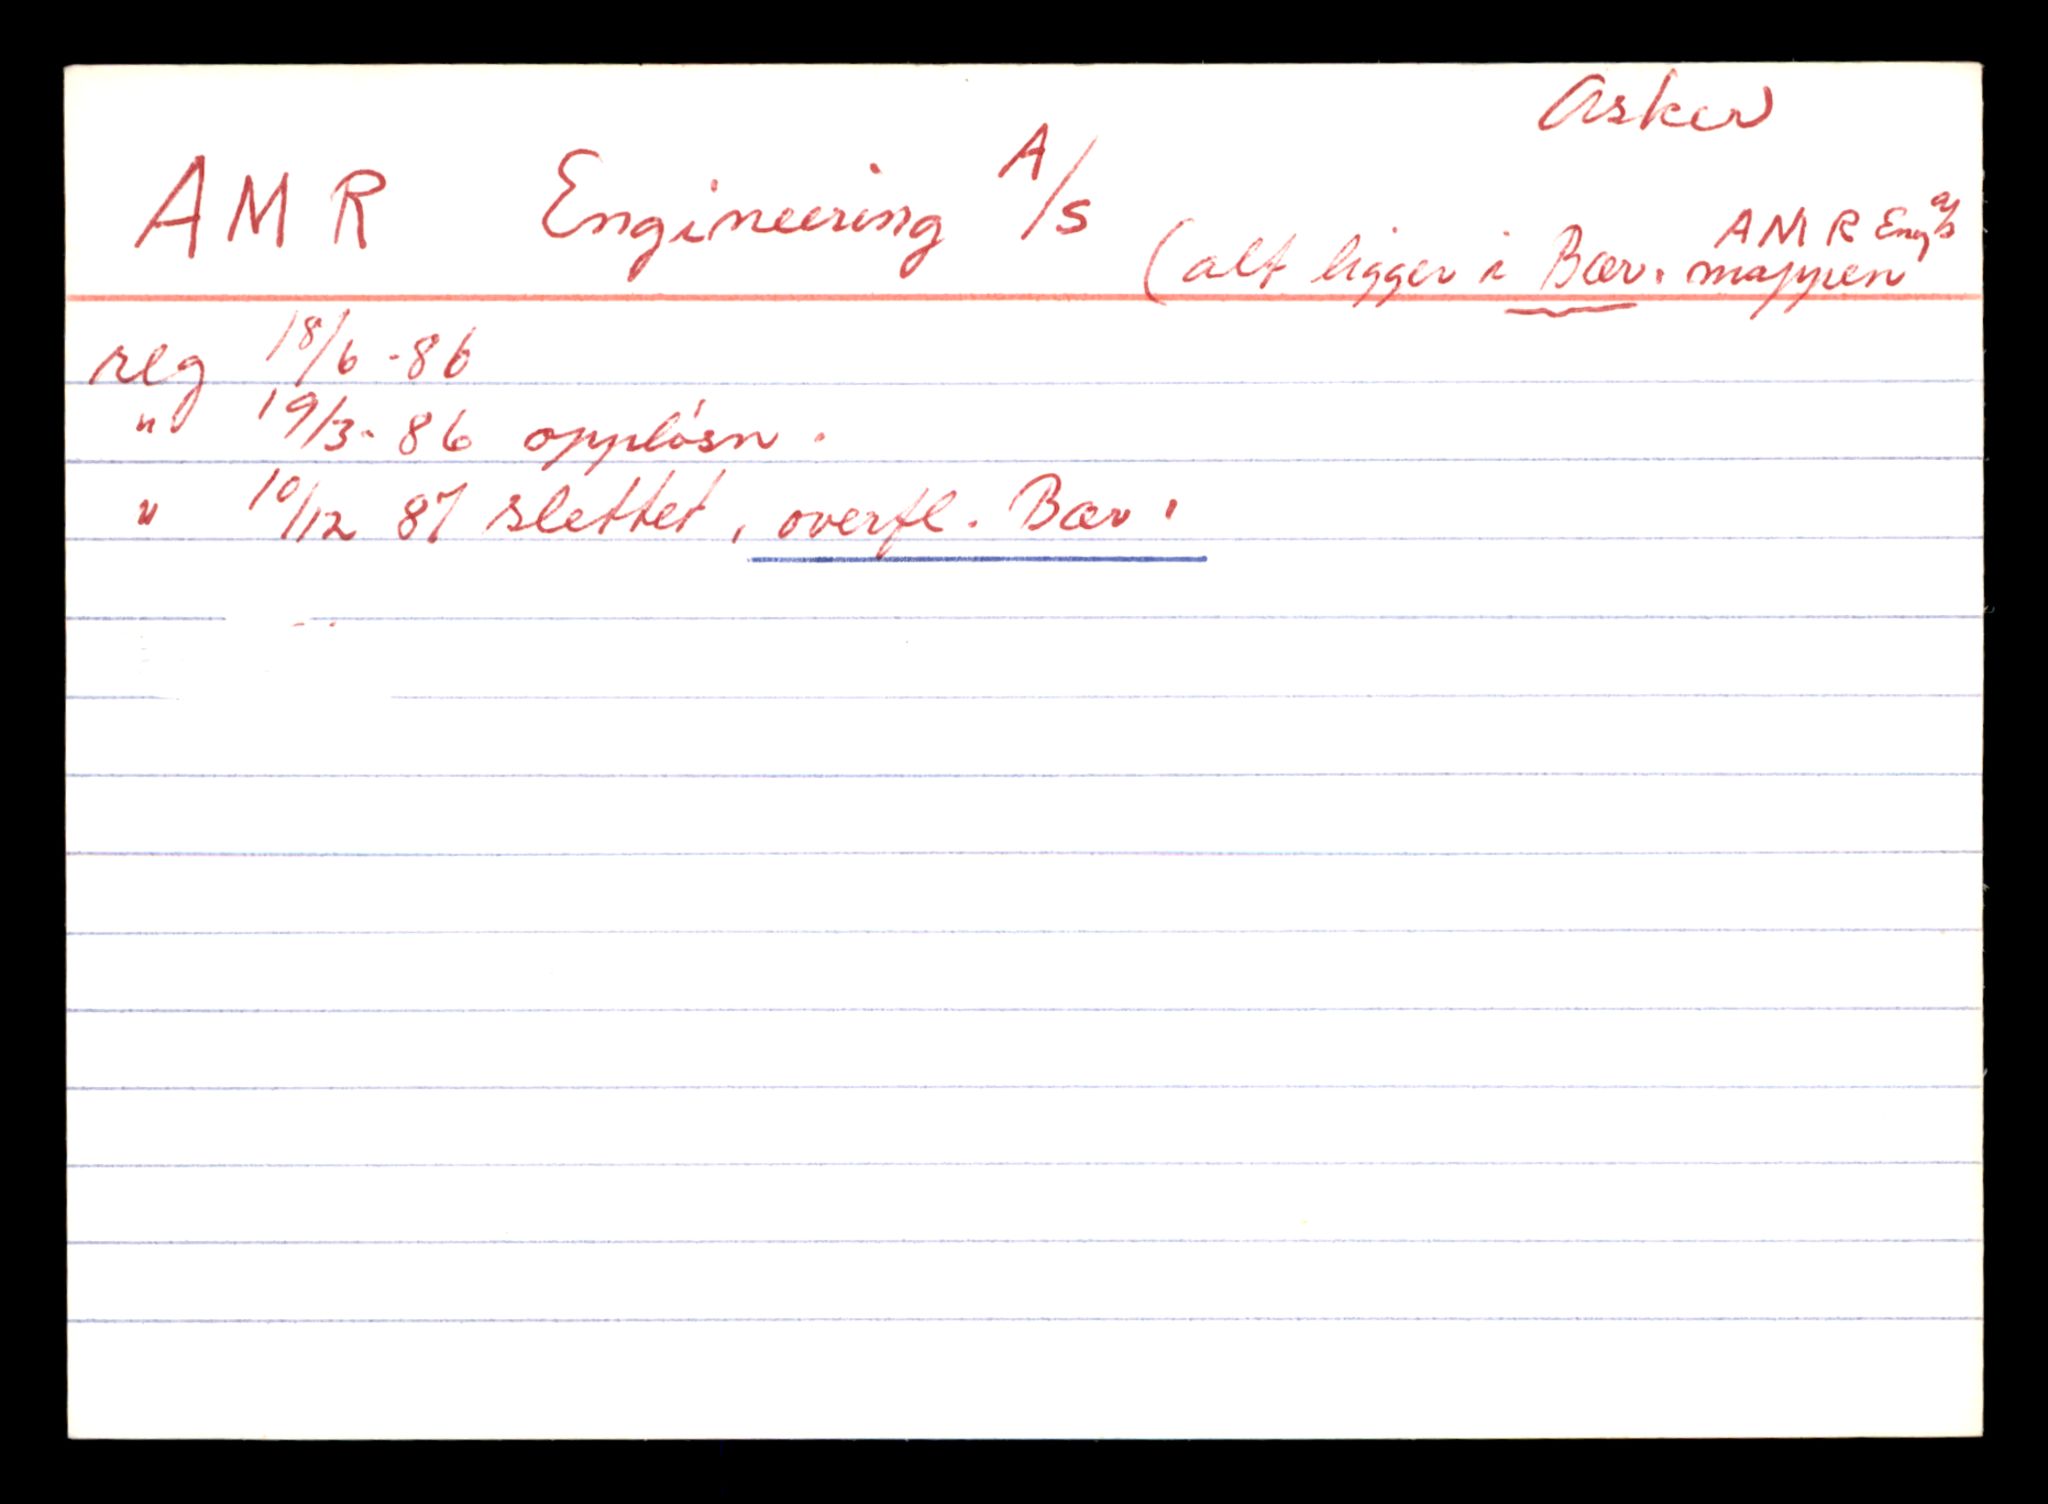 Asker
AMR Engineering A/S
AMR Eng a/s
(alt ligger i Bær. mappen
reg 18/6 -86
" 19/3- 86 oppløsn.
" 10/12 87 slettet, overfl. Bær.